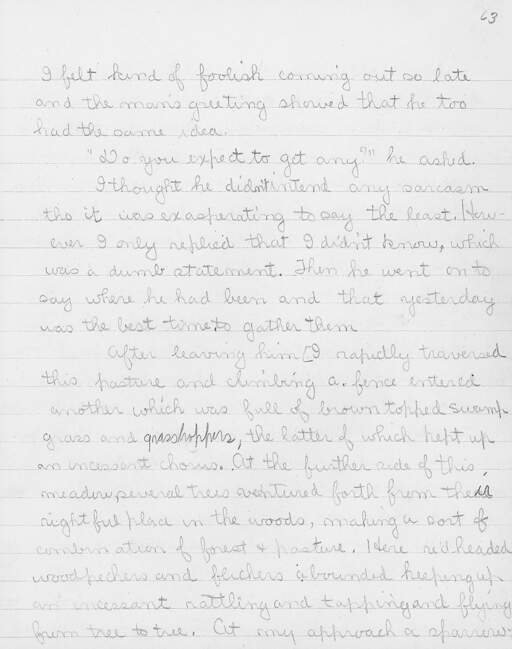 63
I felt kind of foolish coming out so late
and the man's greeting showed that he too
had the same idea.
"Do you expect to get any?" he asked.
I thought he didn't intend any sarcasm
tho it was exasperating to say the least. How-
ever I only replied that I didn't know, which
was a dumb statement. Then he went on to
say where he had been and that yesterday
was the best time to gather them
After leaving him [I rapidly traversed
this pasture and climbing a fence entered
another which was full of brown topped swamp
grass and grasshoppers, the latter of which kept up
an incessant chorus. At the further side of this
meadow several trees ventured forth from their
rightful place in the woods, making a sort of
combination of forest & pasture. Here redheaded
woodpeckers and flickers abounded keeping up
an incessant rattling and tapping and flying
from tree to tree. At my approach a sparrow-